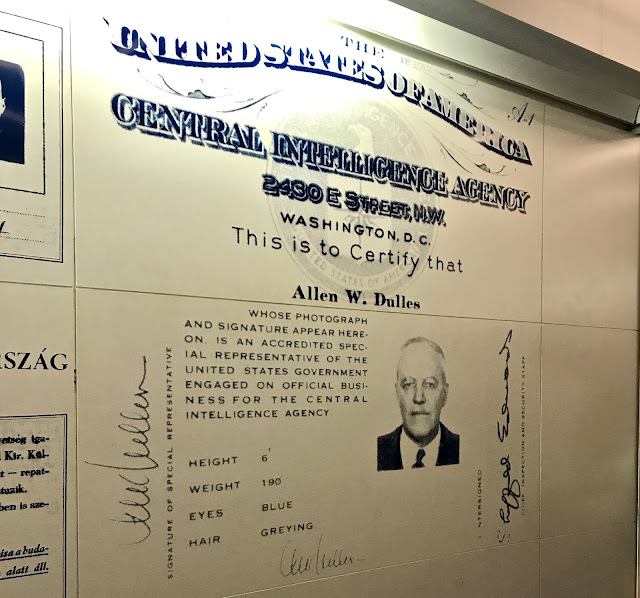 THE
UNITED STATES OF AMERICA
A-1
CENTRAL INTELLIGENCE AGENCY
2430 E STREET, N.W.
WASHINGTON, D. C.
This is to Certify that
Allen W. Dulles
WHOSE PHOTOGRAPH
AND SIGNATURE APPEAR HERE-
ON, IS AN ACCREDITED SPEC-
IAL REPRESENTATIVE OF THE
UNITED STATES GOVERNMENT
ENGAGED ON OFFICIAL BUSI-
NESS FOR THE CENTRAL
INTELLIGENCE AGENCY.
HEIGHT 6'
WEIGHT 190
EYES BLUE
HAIR GREYING
SIGNATURE OF SPECIAL REPRESENTATIVE
Sheffield Edwards
CHIEF, INSPECTION AND SECURITY STAFF
UNITED STATES OF AMERICA
RSZÁG
Kir. Kül-
— repat-
ben is sze-
isa a buda-
alatt áll.